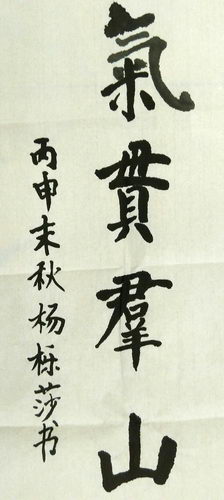 氣貫羣山
丙申末秋杨栎莎书